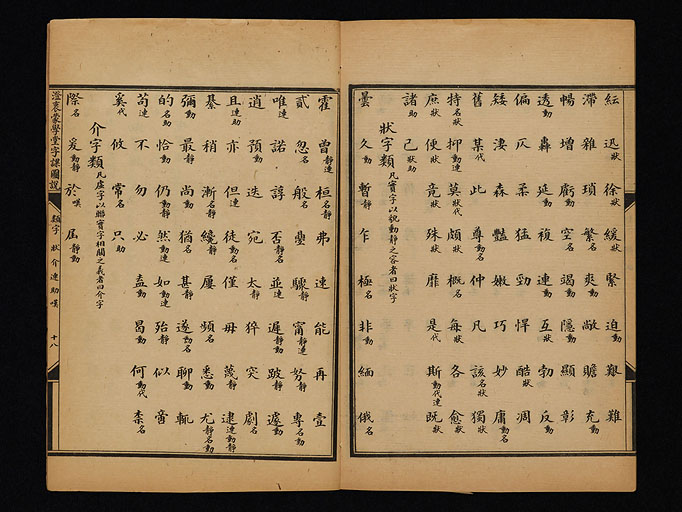 紜 迅狀 徐狀 緩狀 緊 迫動 艱 難
滯 雜 瑣 繁名 爽動 敞 贍 充動
暢 增動 虧動 空名 竭動 隱動 顯 彰
透動 轟動 延動 複 連動 互狀 勃 反動
偏 仄 柔 猛 勁 悍 酷狀 凋
矮 淒 森 豔 嫩 巧 妙 庸動名
舊 某代 此 尊動名 仲 凡 該名狀 獨狀
特名狀 抑動連 莫狀代 頗狀 概名 每狀 各 愈狀
庶狀 便狀 竟狀 殊狀 靡 是代 斯動代連 既狀
諸助 已狀助
狀字類 凡實字以貌動靜之容者曰狀字
曇 久動 暫靜 乍 極名 非動 緬 俄名
霍 曾靜連 桓名靜 弗 速 能 再 壹
貳 忽名 般名 壘 驟靜 甯靜連 努靜 專名動
唯連 諾 諄 否靜名 並連 遲動靜 跛靜 遽動
逍 預動 迭 宛 太靜 猝 突 劇名
且連助 亦 但連 徒動名 僅 毋 蔑靜 逮連動靜
綦 稍 漸名靜 纔靜 屢 頻名 悉動 尤靜名動
彌動 最靜 尚動 猶名 甚靜 遂動名 聊動 輒
的名助 恰動 仍動靜 然動連 如動連 殆靜 似 啻
苟連 不 勿 必 盍動 曷動 何動代 柰名
奚代 攸 常名 只助
介字類 凡虛字以聯實字相關之義者曰介字
際名 爰動靜 於嘆 為靜動
澄衷蒙學堂字課圖說
類字 狀 介 連 助 嘆
十八